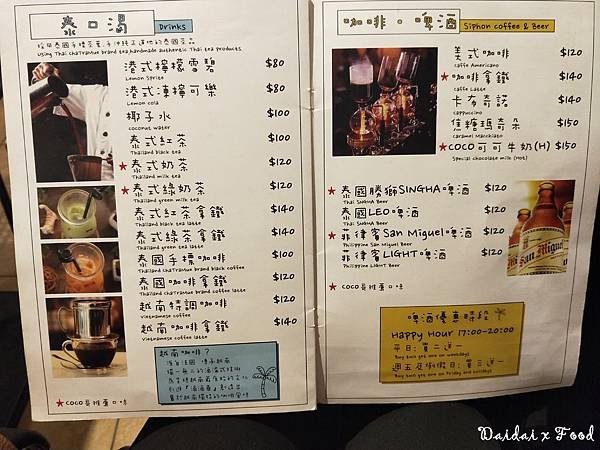 泰口渴 Drinks
採用泰國手標茶葉,手沖純正道地的泰國茶品
Using Thai ChaTraMue brand tea handmade authentic Thai tea products
港式檸檬雪碧 $80
Lemon Sprite
港式凍檸可樂 $80
Lemon cola
椰子水 $100
coconut water
泰式紅茶 $100
Thailand black tea
★泰式奶茶 $120
Thailand milk tea
★泰式綠奶茶 $120
Thailand green milk tea
泰式紅茶拿鐵 $140
Thailand black tea latte
泰式綠茶拿鐵 $140
Thailand green tea latte
泰國手標咖啡 $100
Thailand ChaTraMue brand black coffee
泰國手標咖啡拿鐵 $120
Thailand ChaTraMue brand coffee latte
越南特調咖啡 $120
Vietnamese coffee
越南咖啡拿鐵 $140
Vietnamese coffee latte
越南咖啡?
★COCO哥推薦口味
咖啡·啤酒 Siphon coffee & Beer
美式咖啡 $120
Caffe Americano
★咖啡拿鐵 $140
Caffe Latte
卡布奇諾 $140
Cappuccino
焦糖瑪奇朵 $150
Caramel Macchiato
★COCO可可牛奶(H) $150
Special chocolate milk (Hot)
★泰國勝獅SINGHA啤酒 $120
Thai SINGHA Beer
泰國LEO啤酒 $120
Thai LEO Beer
★菲律賓San Miguel啤酒 $120
Philippine San Miguel Beer
菲律賓LIGHT啤酒 $120
Philippine LIGHT Beer
San Miguel
★COCO哥推薦口味
啤酒優惠時段
Happy Hour 17:00-20:00
平日:買二送一
Buy two get one on weekdays
週五及例假日:買三送一
Daidai x Food